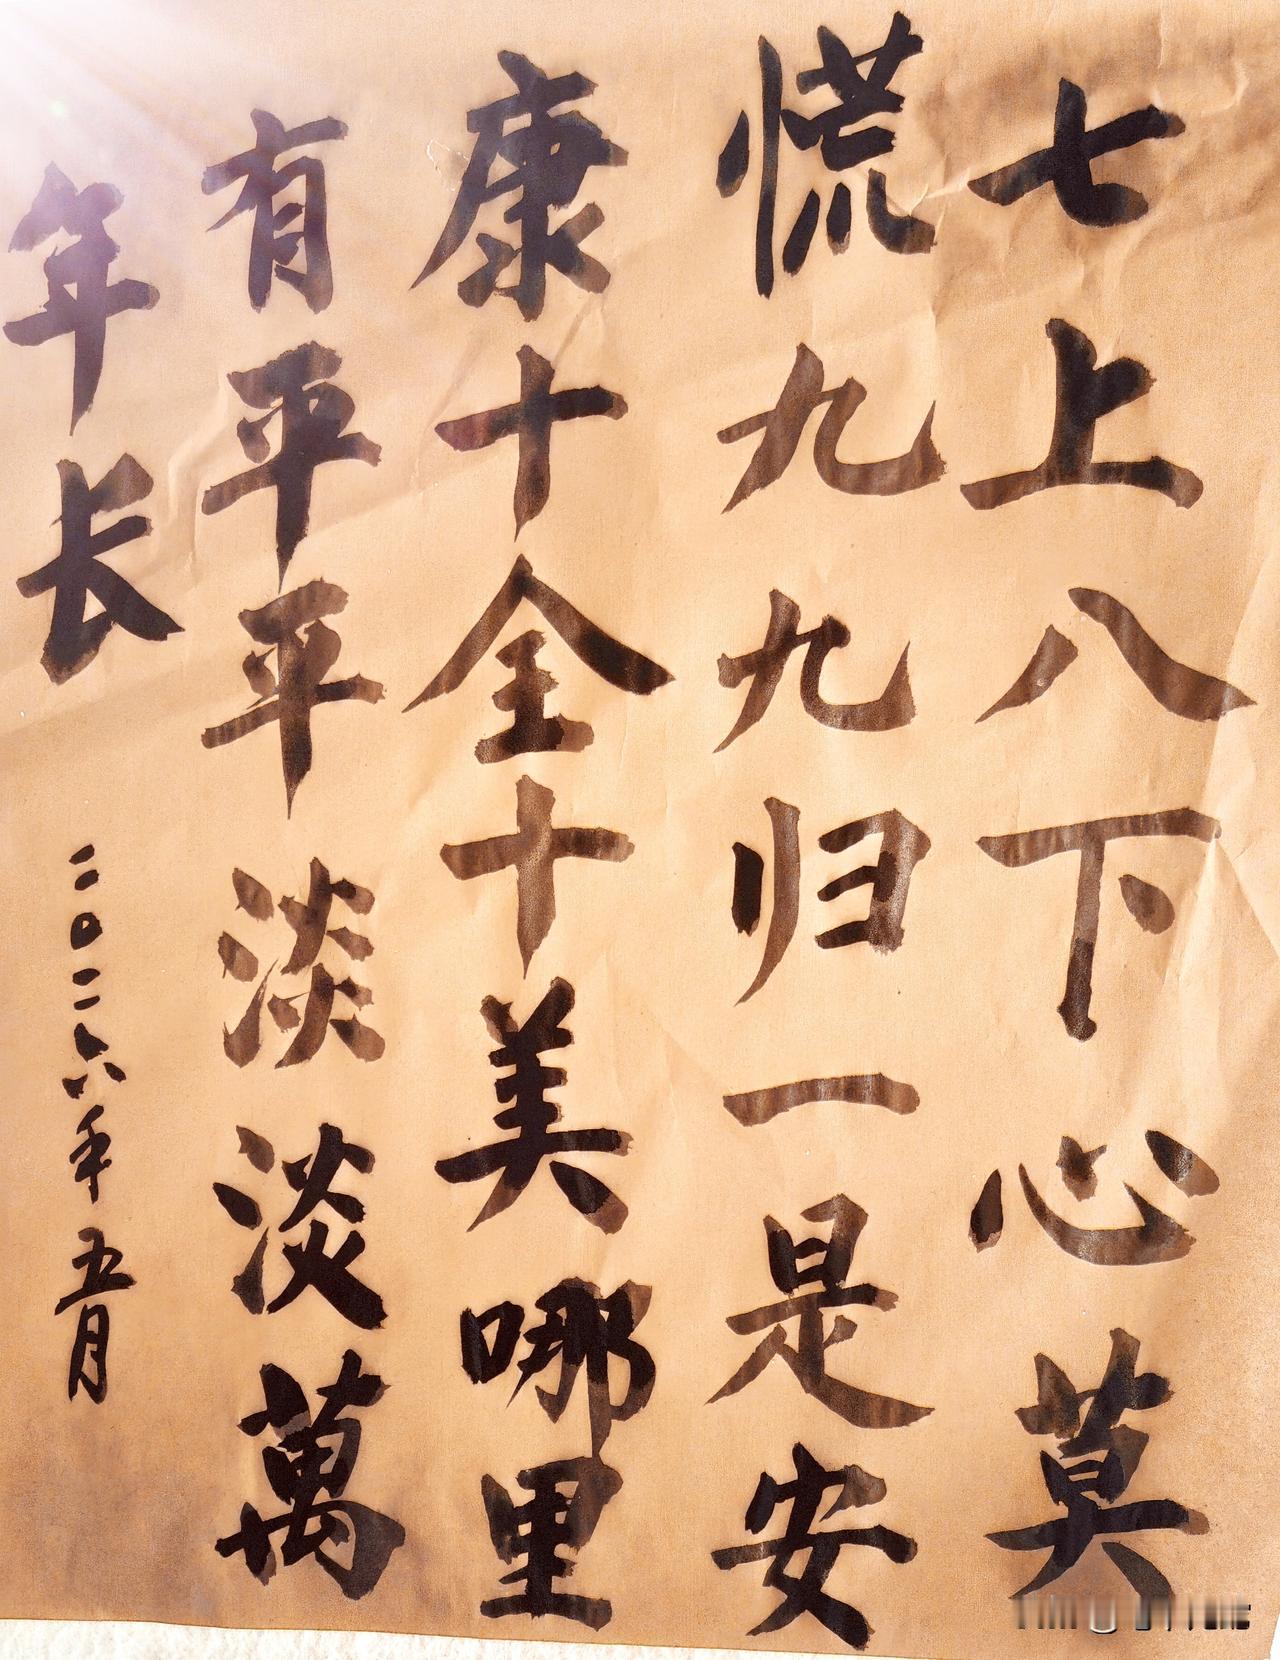 七上八下心莫
慌九九归一是安
康十全十美哪里
有平平淡淡萬
年长
二〇二六年五月